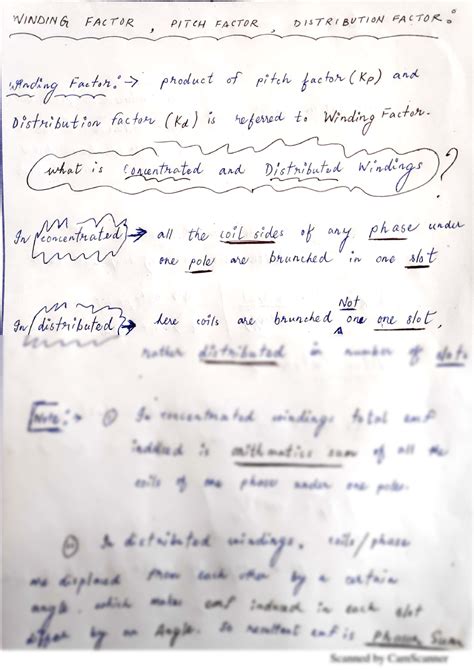 WINDING FACTOR , PITCH FACTOR , DISTRIBUTION FACTOR :
Winding Factor :→ product of pitch factor (Kp) and
Distribution factor (Kd) is referred to Winding Factor.
What is Concentrated and Distributed Windings ?
In concentrated → all the coil sides of any phase under
one pole are brunched in one slot
In distributed → here coils are brunched Not one one slot,
rather distributed in number of slots
Note :→ ① In concentrated windings total emf
induced is arithmatics sum of all the
coils of one phase under one pole.
② In distributed windings, coils/phase
are displaced from each other by a certain
angle, which makes emf induced in each slot
differ by an Angle. So resultant emf is Phasor Sum
Scanned by CamScanner